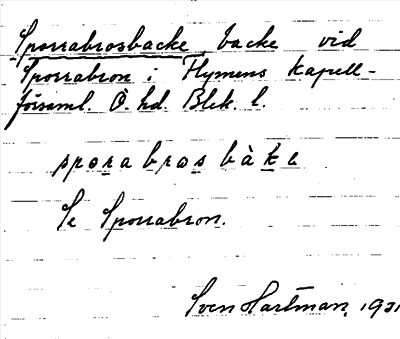 Sporrabrosbacke, backe vid
Sporrabron i Flymens kapell-
församl. Ö. hd. Blek. l.
sporabros bàke
Se Sporrabron.
Sven Hartman, 1931